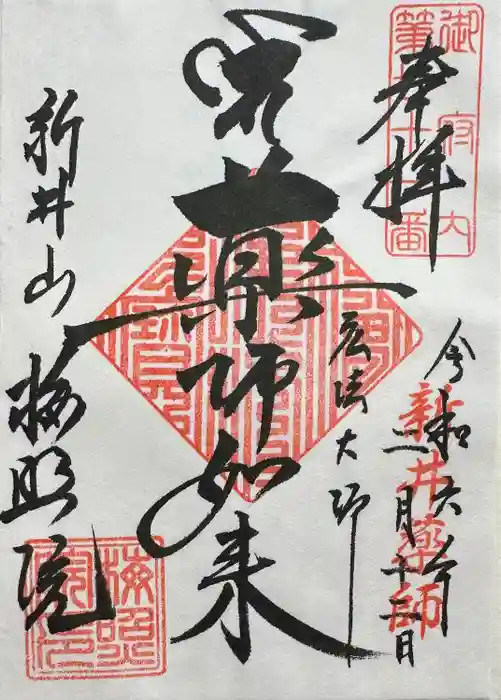 奉拝
御府内
第七十一番
令和六年
二月十二日
新井薬師
弘法大師
薬師如来
新井山
梅照院
梅照院